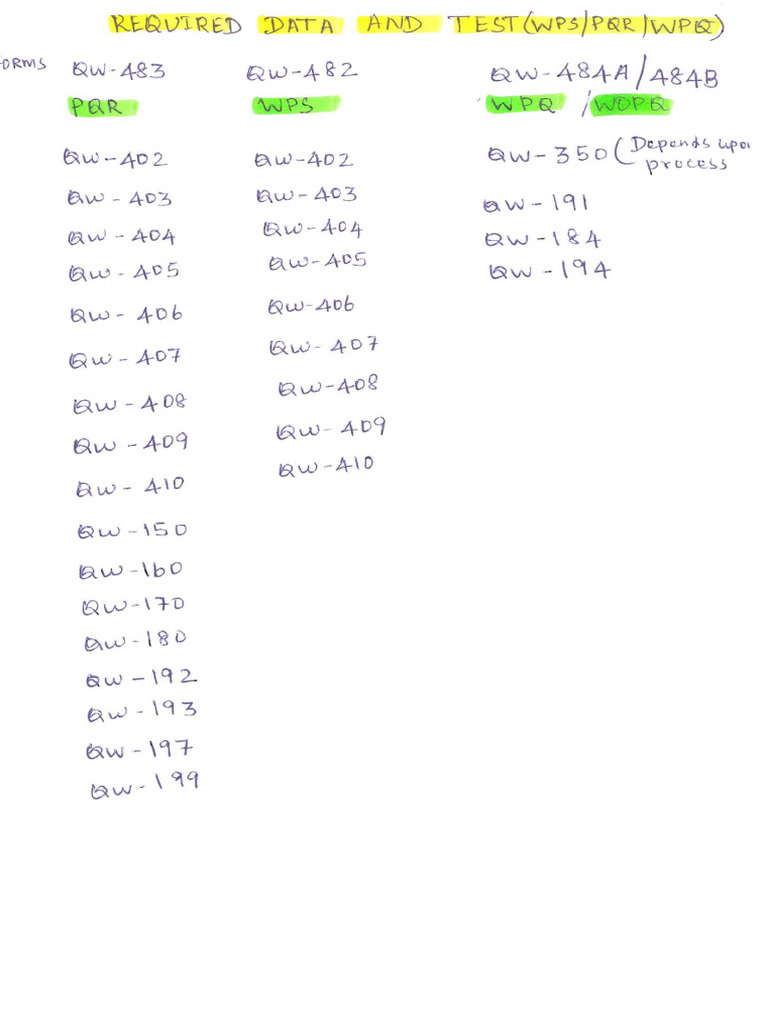 REQUIRED DATA AND TEST(WPS/PQR/WPQ)
ORMS QW-483 QW-482 QW-484A/484B
PQR WPS WPQ / WOPQ
QW-402 QW-402 QW-350 (Depends upon
process
QW-403 QW-403 QW-191
QW-404 QW-404 QW-184
QW-405 QW-405 QW-194
QW-406 QW-406
QW-407 QW-407
QW-408 QW-408
QW-409 QW-409
QW-410 QW-410
QW-150
QW-160
QW-170
QW-180
QW-192
QW-193
QW-197
QW-199